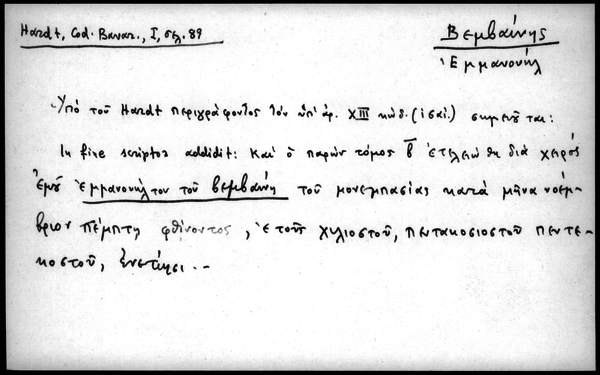 Hardt, Cod. Bavar., I, σελ. 89
Βεμβαίνης
Ἐμμανουήλ
Ὑπὸ τοῦ Hardt περιγράφοντος τὸν ὑπ' ἀρ. XIII κώδ. (ἰσαι.) σημειοῦται:
In fine scriptor addidit: Καὶ ὁ παρὼν τόμος β ἐτελειώθη διὰ χειρὸς
ἐμοῦ Ἐμμανουήλου τοῦ βεμβαίνη τοῦ μονεμβασίας κατὰ μῆνα νοέμ-
βριον πέμπτῃ φθίνοντος, ἔτους χιλιοστοῦ, πεντακοσιοστοῦ πεντη-
κοστοῦ, ἐνετίησι..